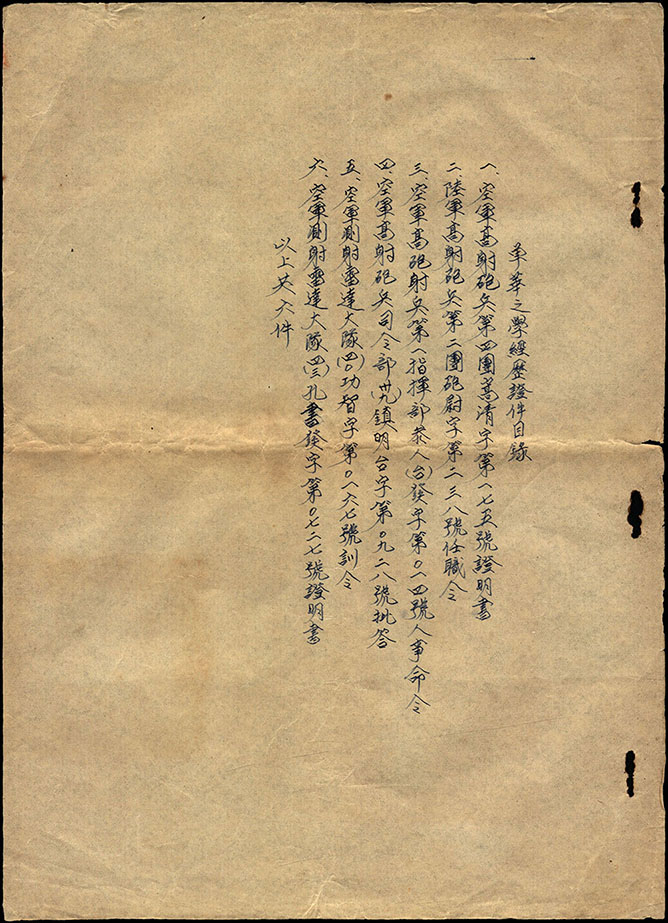 華之學經歷證件目錄
一、空軍高射砲兵第四團蒿清字第一七五號證明書
二、陸軍高射砲兵第二團砲尉字第二三八號任職令
三、空軍高砲射兵第一指揮部人(台)發字第〇一四號人事命令
四、空軍高射砲兵司令部(卅九)鎮明台字第〇九二八號批答
五、空軍測射雷達大隊(四〇)功智字第〇一六七號訓令
六、空軍測射雷達大隊(四三)孔書發字第〇七二七號證明書
以上共六件